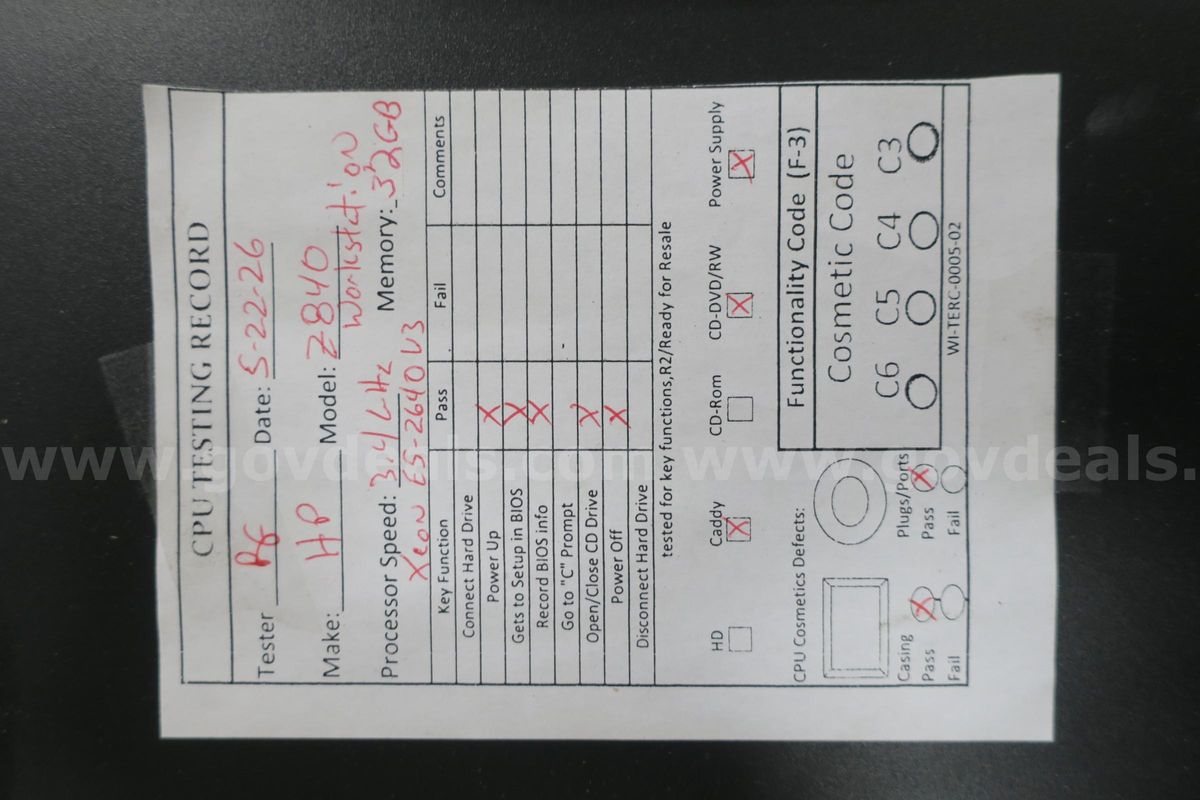 CPU TESTING RECORD
Tester PG Date: 5-22-26
Make: HP Model: Z840
Workstation
Processor Speed: 3.4 GHz Memory: 32GB
Xeon E5-2640 V3
Key Function Pass Fail Comments
Connect Hard Drive
Power Up X
Gets to Setup in BIOS X
Record BIOS info X
Go to "C" Prompt
Open/Close CD Drive X
Power Off X
Disconnect Hard Drive
tested for key functions,R2/Ready for Resale
HD Caddy CD-Rom CD-DVD/RW Power Supply
X X X
CPU Cosmetics Defects:
Casing Plugs/Ports
Pass X Pass X
Fail Fail
Functionality Code (F-3)
Cosmetic Code
C6 C5 C4 C3
WI-TERC-0005-02
www.govdeals.com www.govdeals.